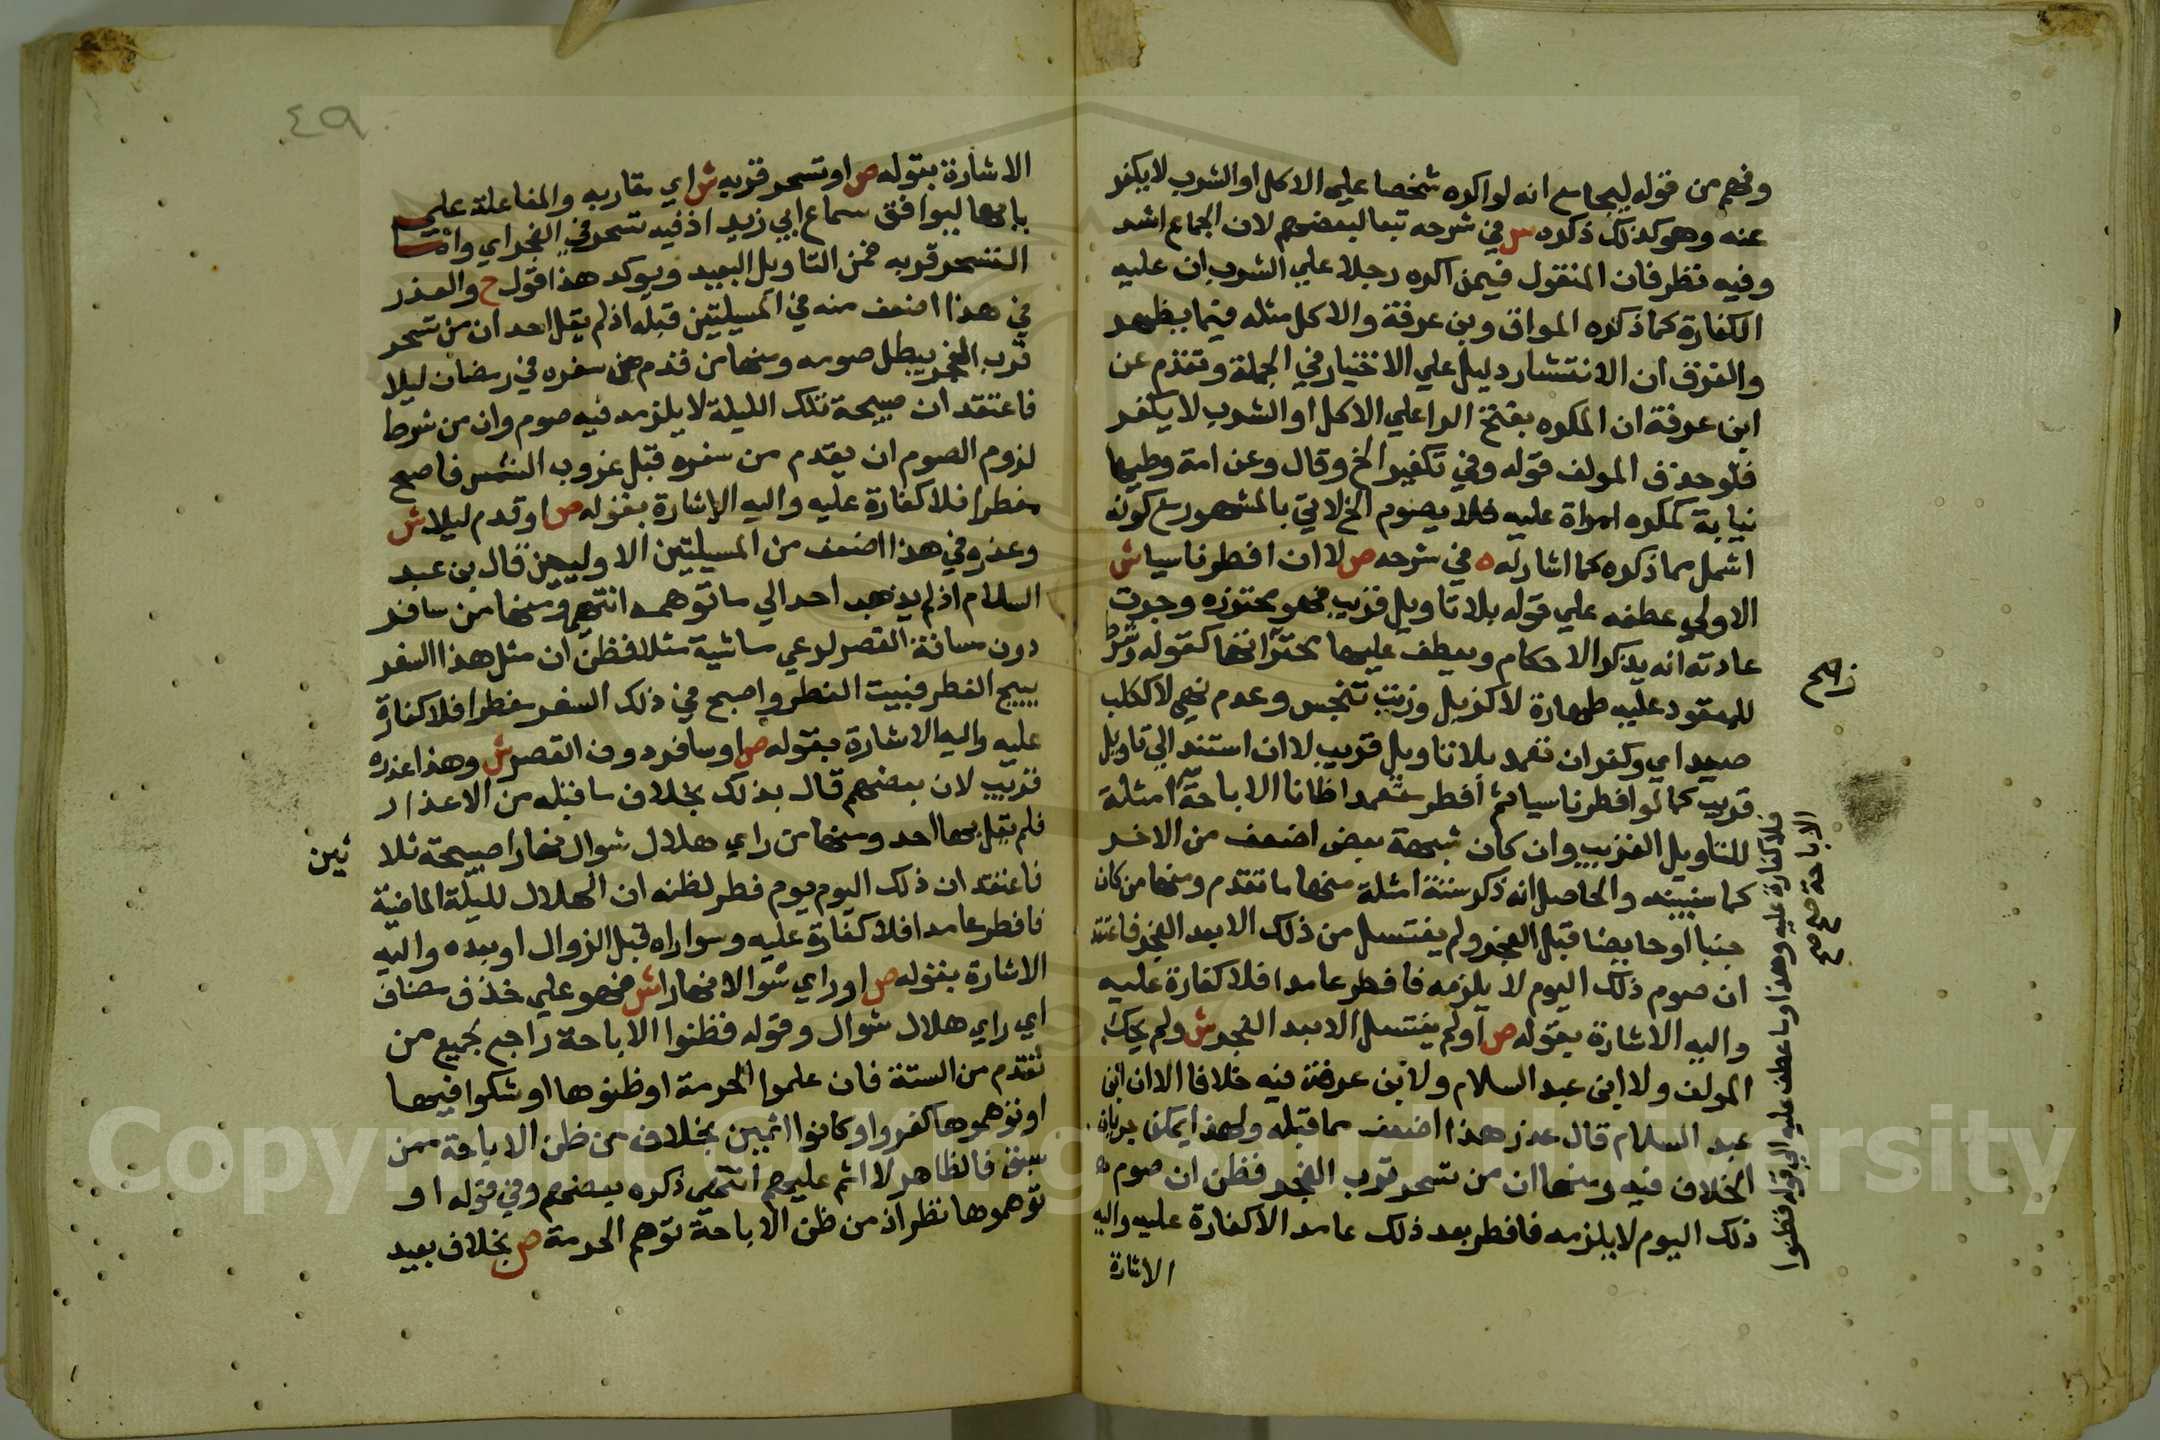 وفهم من قوله ليجامع انه لو اكره شخصا علي الاكل او الشرب لا يكفر
عنه وهو كذلك ذكره س في شرحه تبعا لبعضهم لان الجماع اشد
وفيه نظر فان المنقول فيمن اكره رجلا علي الشرب ان عليه
الكفارة كما ذكره المواق وبن عرفة والاكل مثله فيما يظهر
والفرق ان الانتشار دليل علي الاختيار في الجملة وتقدم عن
ابن عرفة ان المكره بفتح الرا علي الاكل او الشرب لا يكفر
فلو حذف المولف قوله وفي تكفير الخ وقال وعن امة وطيها
نيابة كمكره امراة عليه فلا يصوم الخ لاتي بالمشهور مع كونه
اشمل مما ذكره كما اشار له ه في شرحه ص لا ان افطر ناسيا ش
الاولي عطفه علي قوله بلا تاويل قريب فهو محترزه وجرت
عادته انه يذكر الاحكام ويعطف عليها محترزاتها كقوله وشرط
للمعقود عليه طهارة لا كزبل وزيت تنجس وعدم نهي لا ككلب
صيد اي وكفر ان تعمد بلا تاويل قريب لا ان استند الي تاويل
قريب كما لو افطر ناسيا ثم افطر متعمدا ظانا الاباحة امثلة
للتاويل القريب وان كان شبهة بعض اضعف من الاخر
كما سنبينه والحاصل انه ذكر ستة امثلة منها ما تقدم ومنها من كان
جنبا او حايضا قبل الفجر ولم يغتسل من ذلك الا بعد الفجر فاعتقد
ان صوم ذلك اليوم لا يلزمه فافطر عامدا فلا كفارة عليه
واليه الاشارة بقوله ص او لم يغتسل الا بعد الفجر ش ولم يحك
المولف ولا ابن عبد السلام ولا بن عرفة فيه خلافا الا ان ابن
عبد السلام قال عذر هذا اضعف مما قبله ولهذا يمكن جريان
الخلاف فيه ومنها ان من تسحر قرب الفجر فظن ان صوم
ذلك اليوم لا يلزمه فافطر بعد ذلك عامدا لا كفارة عليه واليه
الاشارة
فلا كفارة عليه وهذا وما عطف عليه الي قوله فظنوا
الاباحة صح صح
الاشارة بقوله ص او تسحر قربه ش اي مقاربه والمفاعلة علي
بابها ليوافق سماع ابي زيد اذ فيه تسحر في الفجر اي واما
التسحر قربه فمن التاويل البعيد ويوكد هذا قول ح والعذر
في هذا اضعف منه في المسيلتين قبله اذ لم يقل احد ان من تسحر
قرب الفجر يبطل صومه ومنها من قدم من سفره في رمضان ليلا
فاعتقد ان صبيحة تلك الليلة لا يلزمه فيه صوم وان من شرط
لزوم الصوم ان يقدم من سفره قبل غروب الشمس فاصبح
مفطرا فلا كفارة عليه واليه الاشارة بقوله ص او قدم ليلا ش
وعذره في هذا اضعف من المسيلتين الاوليين قال بن عبد
السلام اذ لم يذهب احد الي ما توهمه انتهي ومنها من سافر
دون مسافة القصر لرعي ماشية مثلا فظن ان مثل هذا السفر
يبيح الفطر فبيت الفطر واصبح في ذلك السفر مفطرا فلا كفارة
عليه واليه الاشارة بقوله ص او سافر دون القصر ش وهذا عذره
قريب لان بعضهم قال بذلك بخلاف ما قبله من الاعذار
فلم يقل بها احد ومنها من راي هلال شوال نهارا صبيحة ثلا
ثين
فاعتقد ان ذلك اليوم يوم فطر لظنه ان الهلال لليلة الماضية
فافطر عامدا فلا كفارة عليه وسوا راه قبل الزوال او بعده واليه
الاشارة بقوله ص او راي شوالا نهارا ش فهو علي حذف مضاف
اي راي هلال شوال وقوله فظنوا الاباحة راجع لجميع من
تقدم من الستة فان علموا الحرمة او ظنوها او شكوا فيها
او توهموها كفروا وكانوا اثمين بخلاف من ظن الاباحة ممن
سبق فالظاهر لا اثم عليهم انتهي ذكره بعضهم وفي قوله او
توهموها نظر اذ من ظن الاباحة توهم الحرمة ص بخلاف بعيد
٤٩
Copyright © King Saud University